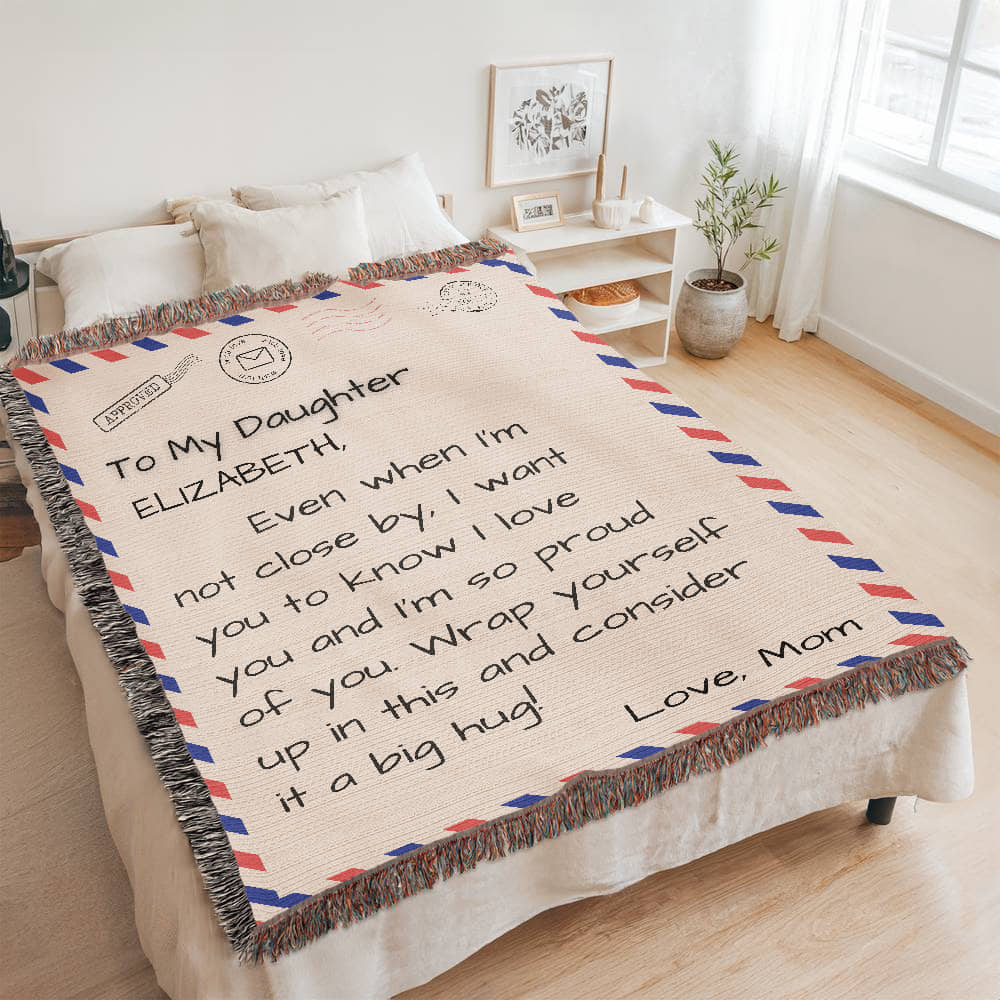 APPROVED
To My Daughter
ELIZABETH,
Even when I'm
not close by, I want
you to know I love
you and I'm so proud
of you. Wrap yourself
up in this and consider
it a big hug!
Love, Mom